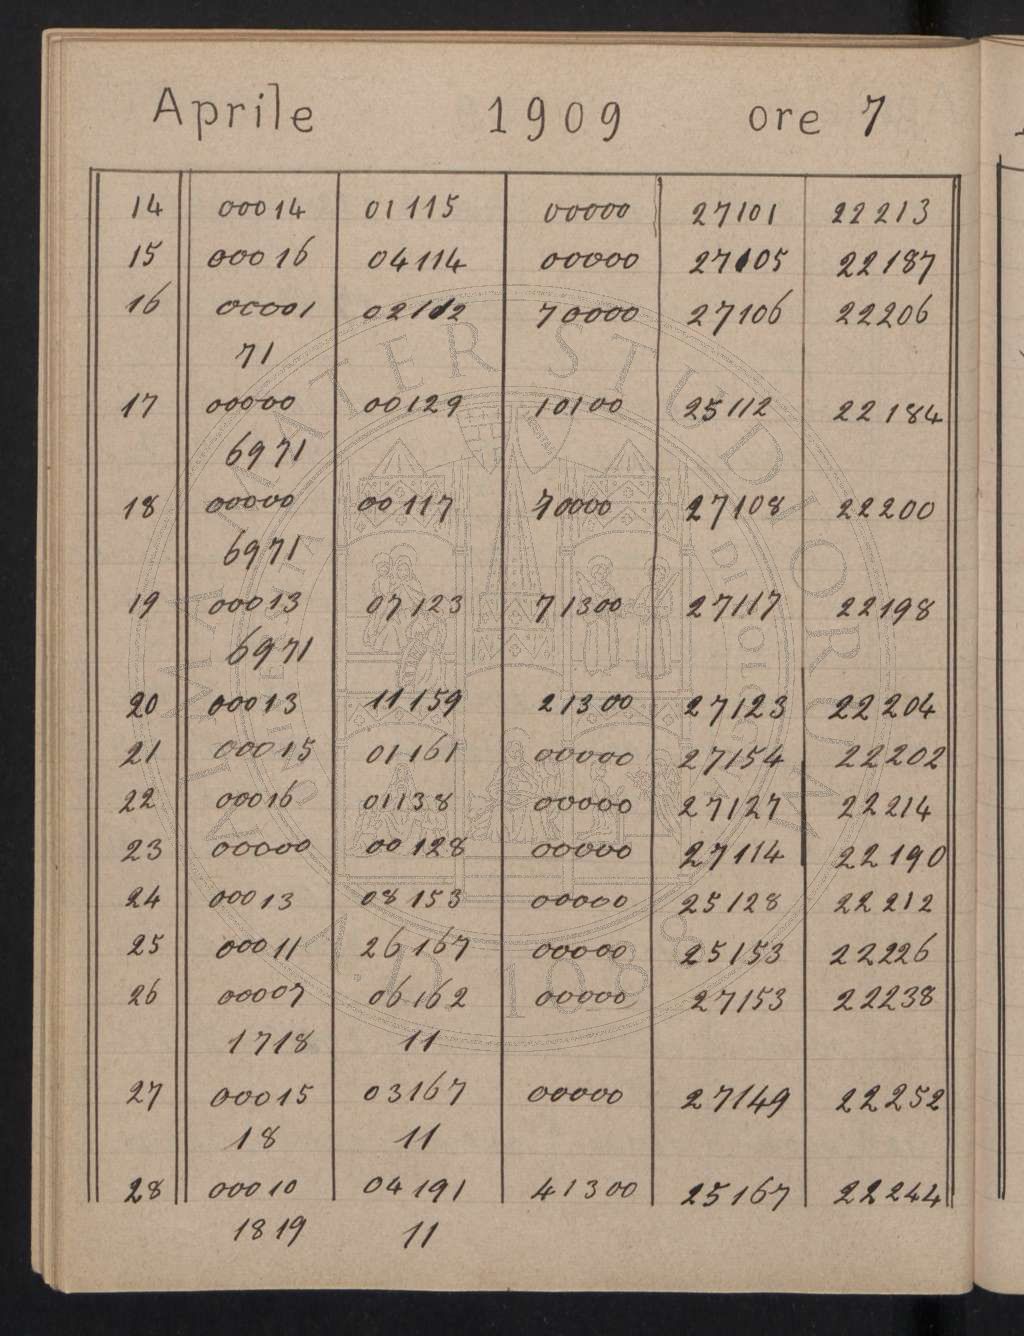 Aprile 1909 ore 7
14 00014 01115 00000 27101 22213
15 00016 04114 00000 27105 22187
16 00001 02112 70000 27106 22206
71
17 00000 00129 10100 25112 22184
6971
18 00000 00117 70000 27108 22200
6971
19 00013 07123 71300 27117 22198
6971
20 00013 11159 21300 27123 22204
21 00015 01161 00000 27154 22202
22 00016 01138 00000 27127 22214
23 00000 00128 00000 27114 22190
24 00013 08153 00000 25128 22212
25 00011 26167 00000 25153 22226
26 00007 06162 00000 27153 22238
1718 11
27 00015 03167 00000 27149 22252
18 11
28 00010 04191 41300 25167 22244
1819 11
ALMA MATER STUDIORUM
A.D. 1088